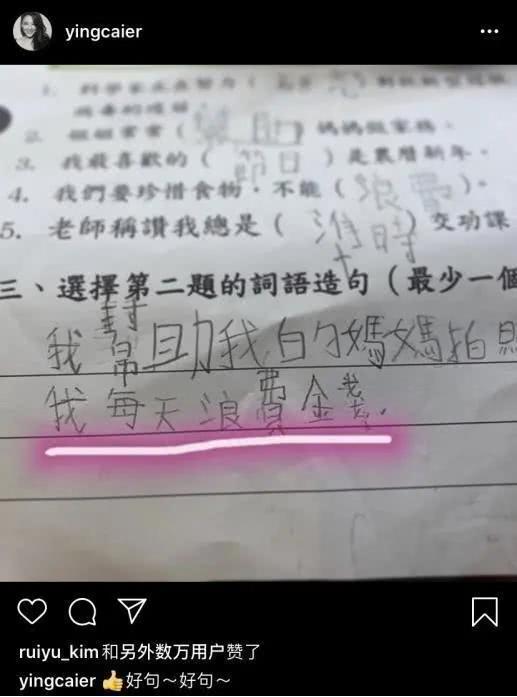 yingcaier
2. 姐姐常常（幫助）媽媽做家務。
3. 我最喜歡的（節日）是農曆新年。
4. 我們要珍惜食物，不能（浪費）。
5. 老師稱讚我總是（準時）交功課
三、選擇第二題的詞語造句（最少一個
我幫助我的媽媽拍照
我每天浪費金錢.
ruiyu_kim和另外数万用户赞了
yingcaier 👍好句～好句～